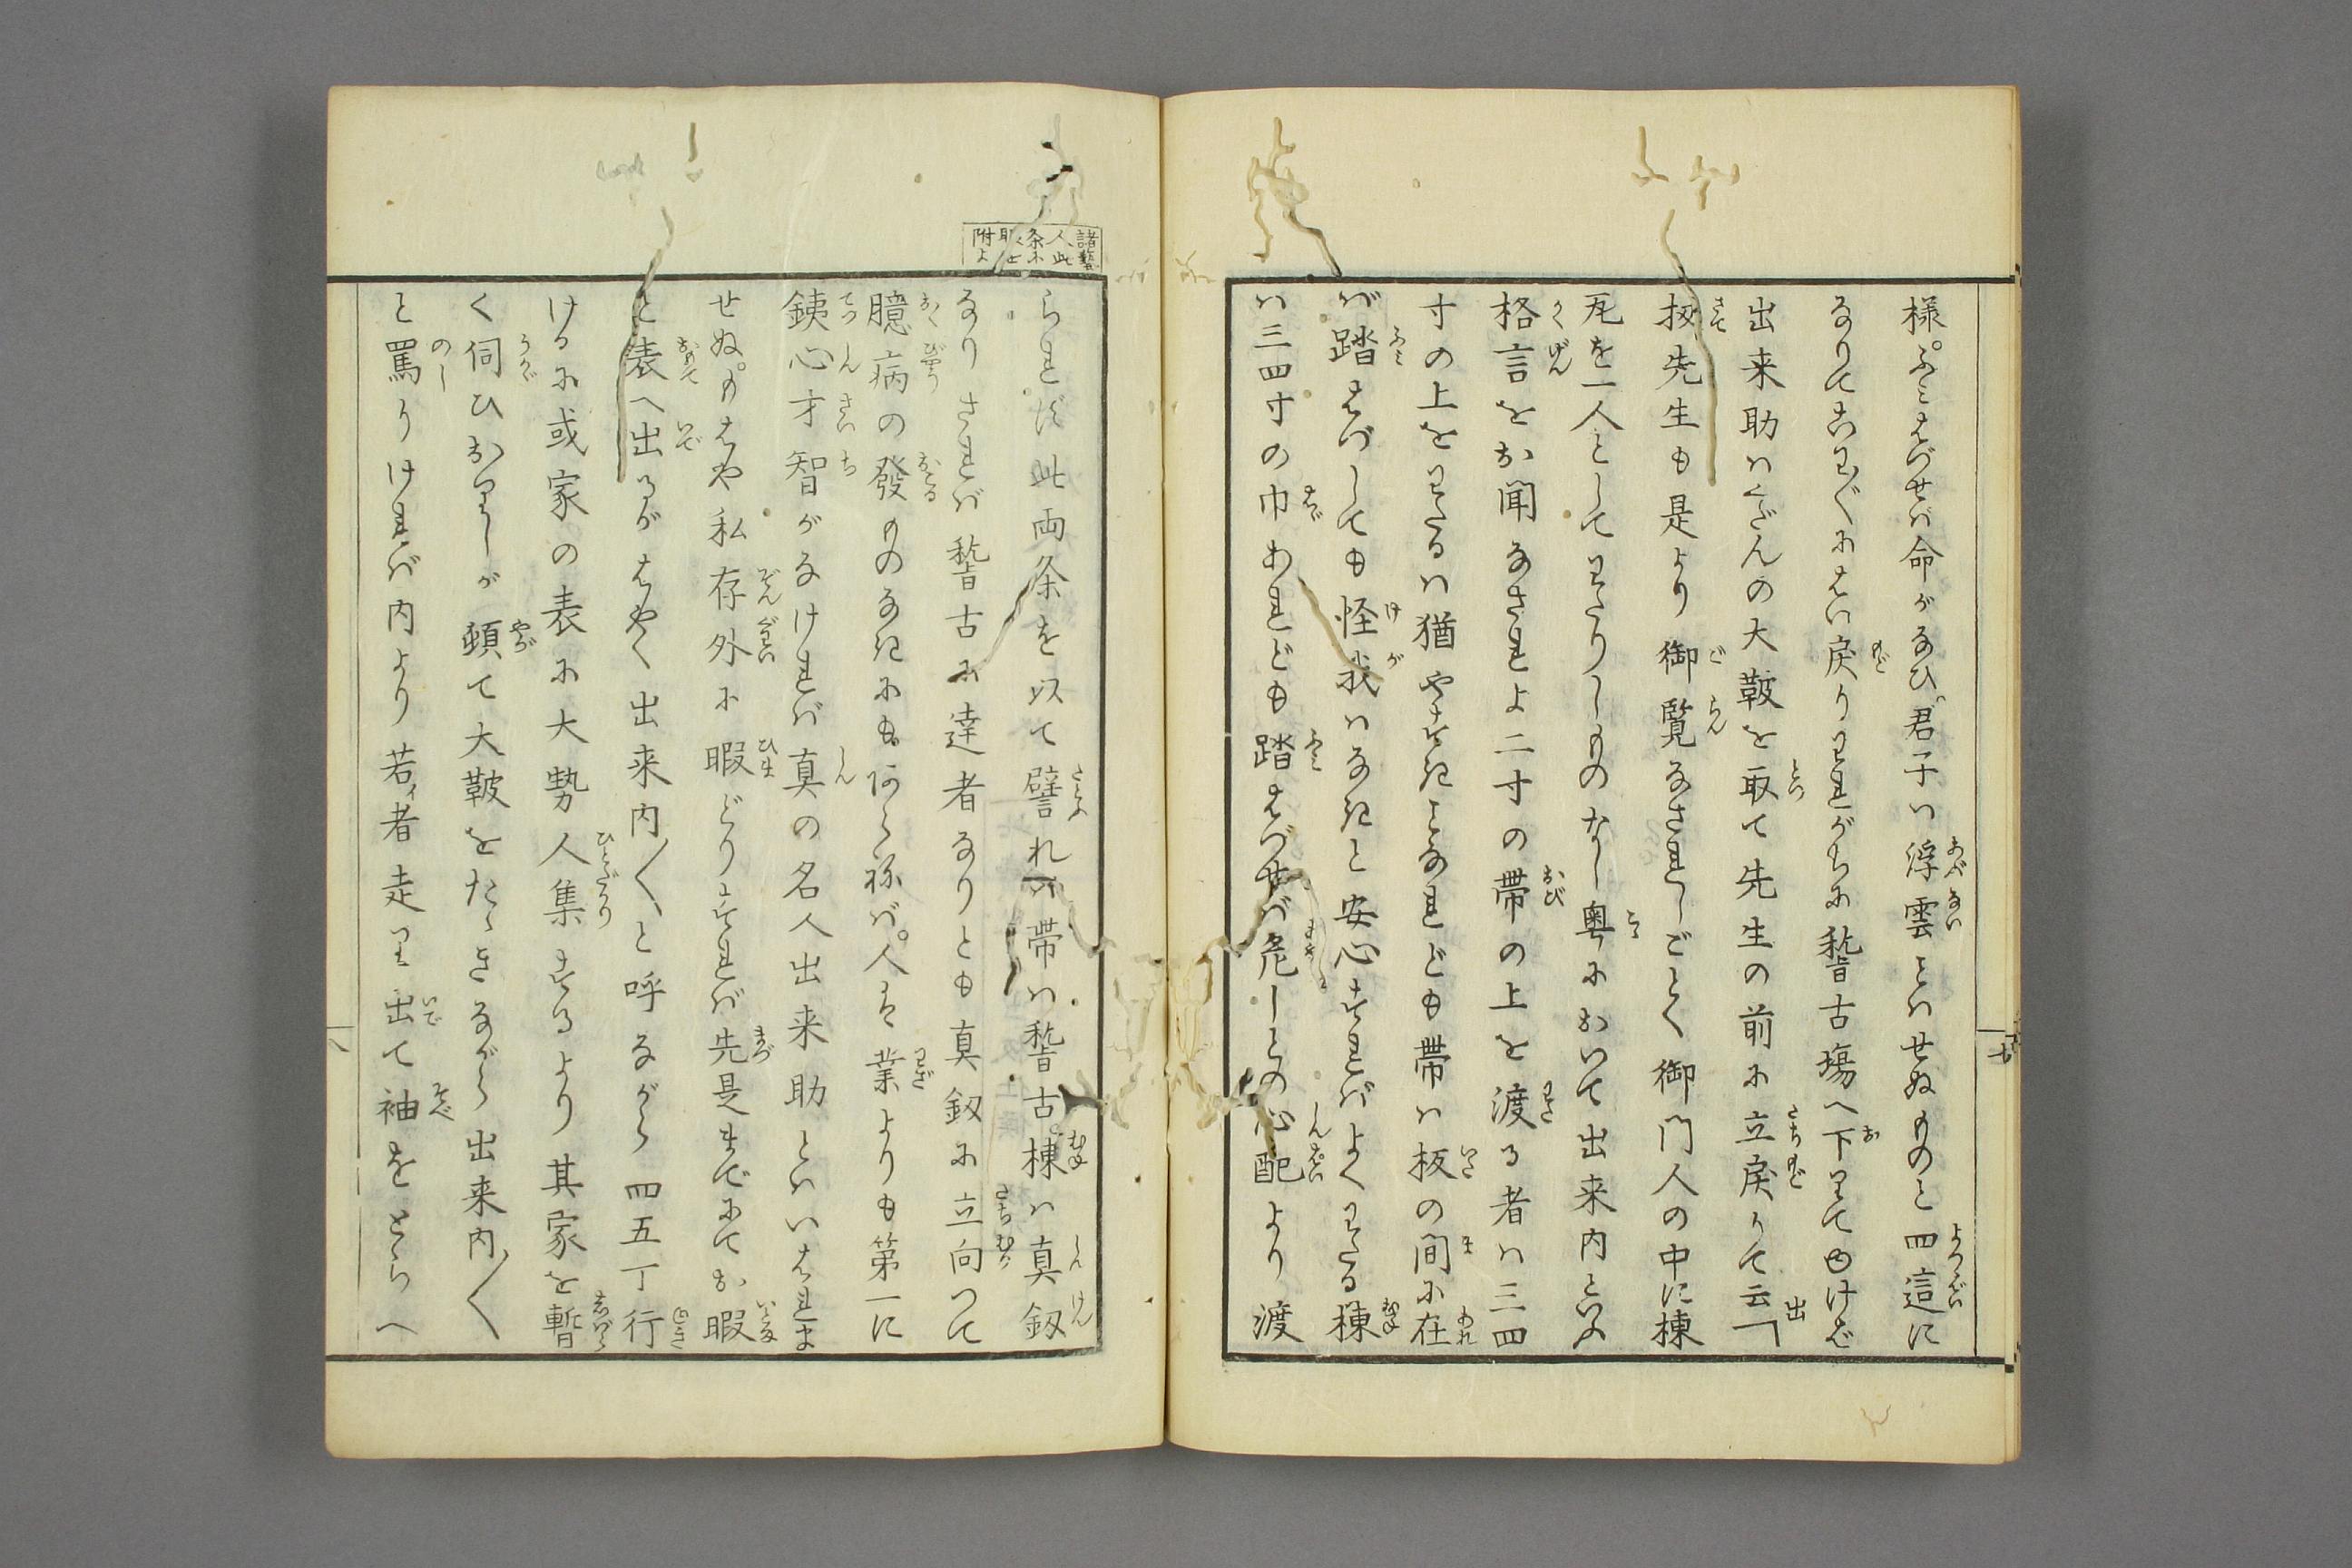 様。ふみはづせば命がなひ。君子ハ浮雲といせぬものと四這に
なりてあわ〲にはい戻りわれがちに稽古塲へ下りてゆけば
出来助ハくだんの大鞁を取て先生の前に立戻りて云出「
扨先生も是より御覧なされしごとく御門人の中に棟
瓦を一人としてわたりしものなし粤において出来内といふ
格言をお聞なされよ二寸の帯の上を渡る者ハ三四
寸の上をわたるハ猶やすきことなれども帯ハ板の間に在
ば踏はづしても怪我ハなきと安心すればよくわたる棟
ハ三四寸の巾あれども踏はづせば危しとの心配より渡
諸藝
人此
条に
附よ
られず此両条を以て譬れバ帯ハ稽古棟ハ真釼
なりされば稽古に達者なりとも真釼に立向つて
臆病の發ものなきにもあらねば。人は業よりも第一に
銕心才智がなければ真の名人出来助といいはれま
せぬ。もはや私存外に暇どりすれば先是までにてお暇
と表へ出るがはやく出来内〱と呼ながら四五丁行
けるに或家の表に大勢人集するより其家を暫
く伺ひおりしが頓て大鞁をたゝきながら出来内〱
と罵りければ内より若イ者走り出て袖をとらへ